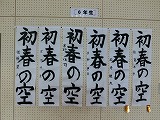 ６年生
初春の空
初春の空
初春の空
初春の空
初春の空
初春の空